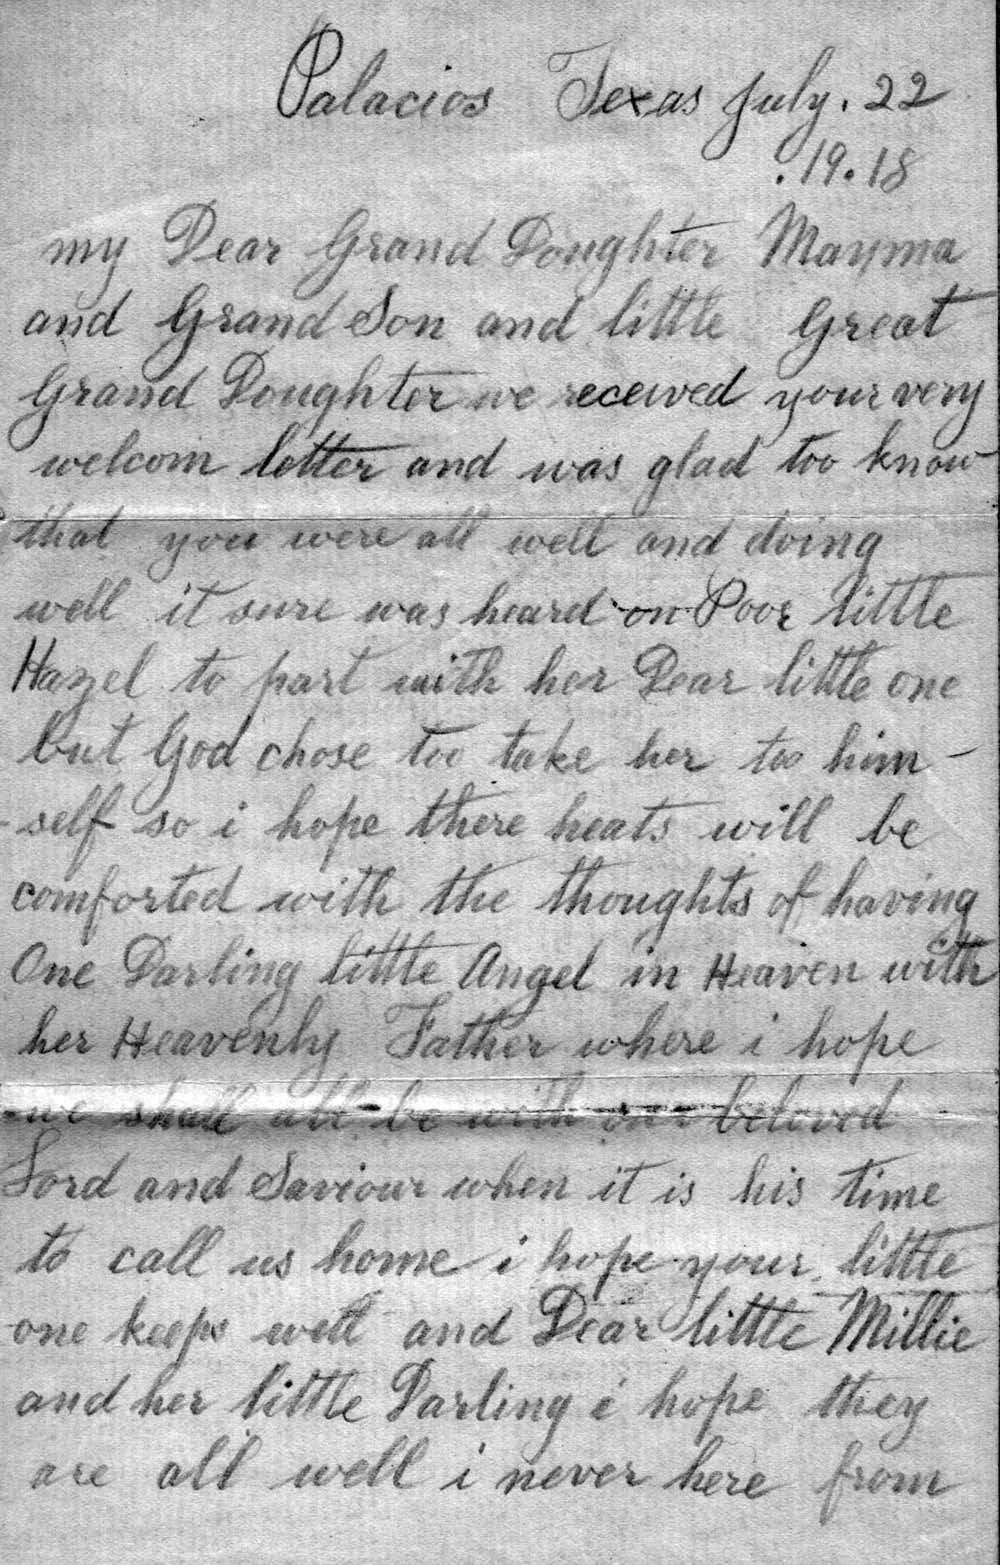 Palacios Texas July. 22
.19.18
my Dear Grand Doughter Mayma
and Grand Son and little Great
Grand Doughter we received your very
welcom letter and was glad too know
that you were all well and doing
well it sure was heard on Poor little
Hazel to part with her Dear little one
but God chose too take her too him-
self so i hope there heats will be
comforted with the thoughts of having
One Darling little Angel in Heaven with
her Heavenly Father where i hope
we shall all be with our beloved
Lord and Saviour when it is his time
to call us home i hope your little
one keeps well and Dear little Millie
and her little Darling i hope they
are all well i never here from